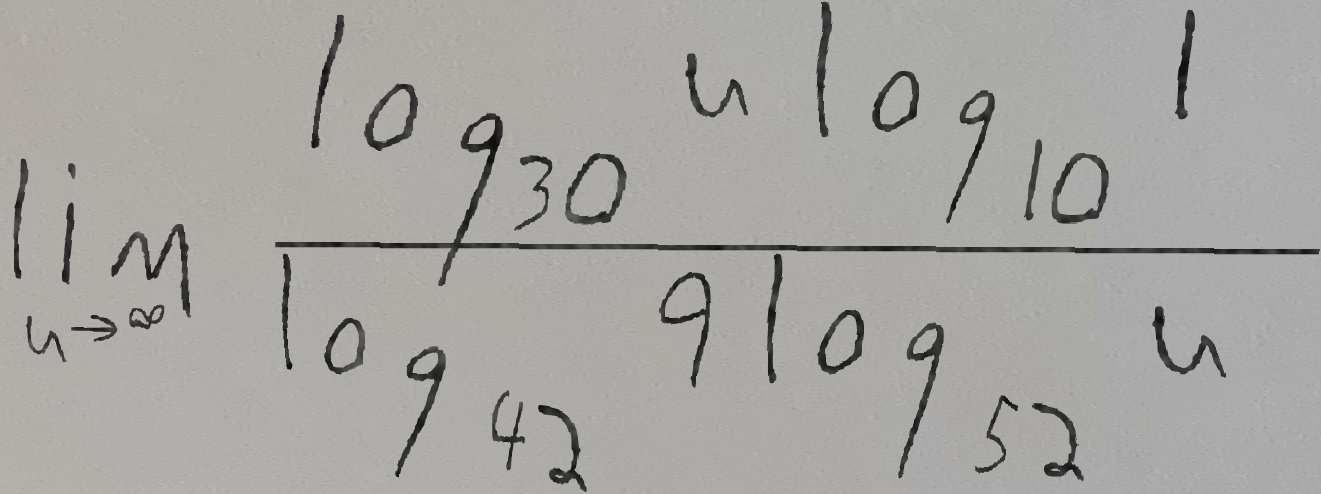 \lim_{u \to \infty} \frac{\log_{30} u \log_{10} 1}{\log_{42} 9 \log_{52} u}